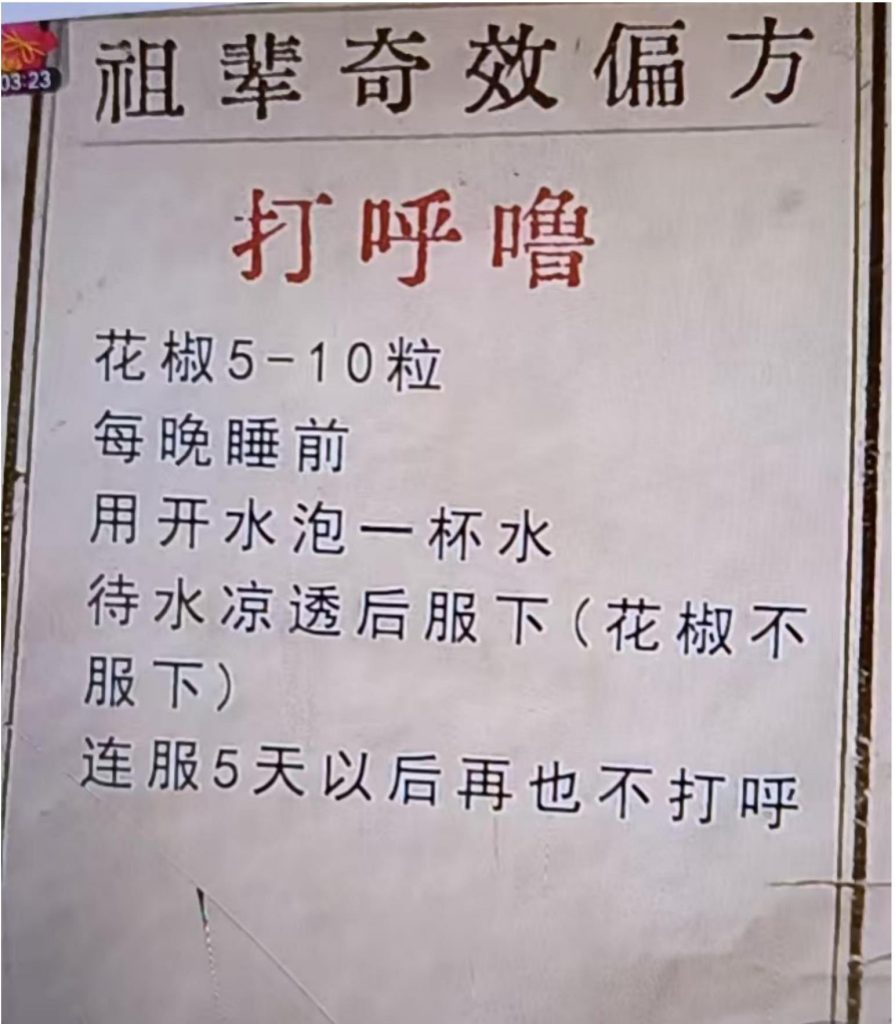 03:23
祖辈奇效偏方
打呼噜
花椒5-10粒
每晚睡前
用开水泡一杯水
待水凉透后服下(花椒不
服下)
连服5天以后再也不打呼